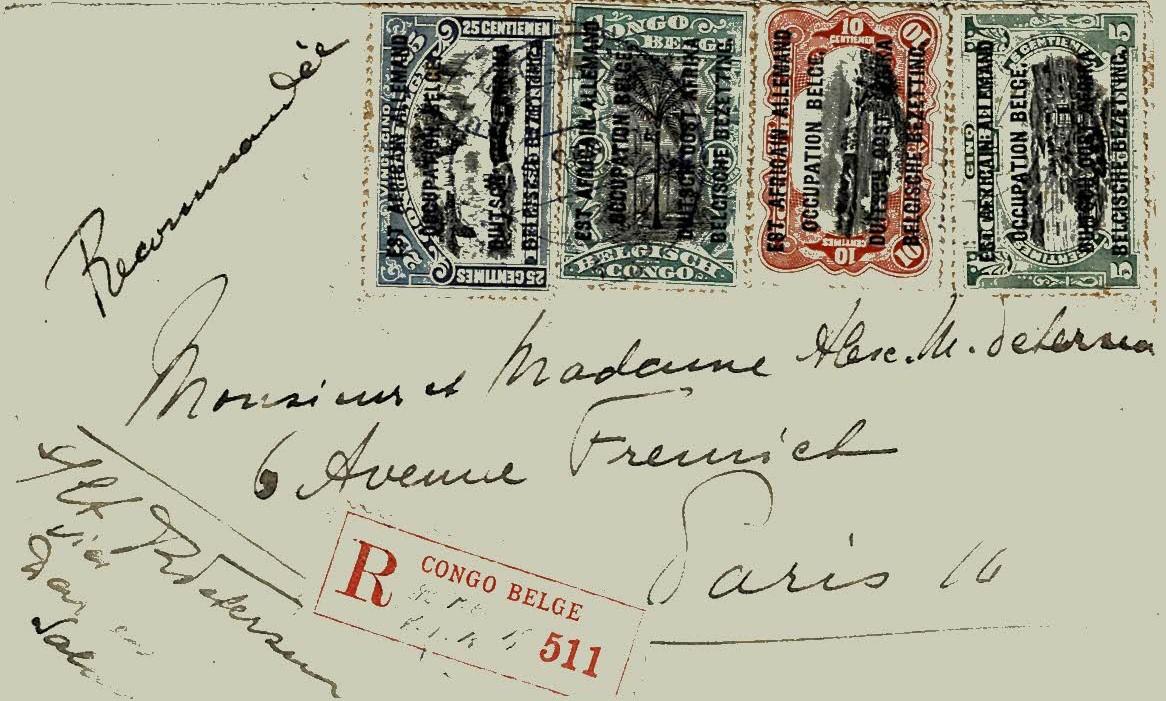 Recommandée
25 CENTIEMEN
25 CENTIMES
EST AFRICAIN ALLEMAND
OCCUPATION BELGE.
DUITSCH OOST AFRIKA
BELGISCHE BEZETTING.
CONGO
BELGE
BELGISCH
CONGO
EST AFRICAIN ALLEMAND
OCCUPATION BELGE.
DUITSCH OOST AFRIKA
BELGISCHE BEZETTING.
10
CENTIEMEN
10
CENTIMES
10
10
EST AFRICAIN ALLEMAND
OCCUPATION BELGE.
DUITSCH OOST AFRIKA
BELGISCHE BEZETTING.
5 CENTIEMEN 5
CENTIMES
5
EST AFRICAIN ALLEMAND
OCCUPATION BELGE.
DUITSCH OOST AFRIKA
BELGISCHE BEZETTING.
Monsieur et Madame Alex. M.
6 Avenue
Paris 16
via
Dar es
Sala
R CONGO BELGE
511